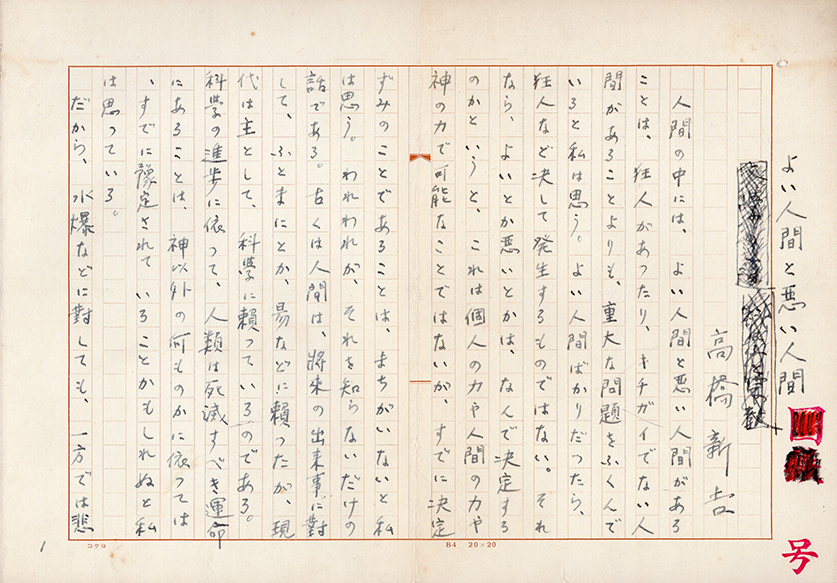 よい人間と悪い人間
高橋新吉
人間の中には、よい人間と悪い人間がある
ことは、狂人があったり、キチガイでない人
間があることよりも、重大な問題をふくんで
いると私は思う。よい人間ばかりだったら、
狂人など決して発生するものではない。それ
なら、よいとか悪いとかは、なんで決定する
のかというと、これは個人の力や人間の力や
神の力で可能なことではないが、すでに決定
ずみのことであることは、まちがいないと私
は思う。われわれが、それを知らないだけの
話である。古くは人間は、將来の出来事に對
して、ふとまにとか、易などに頼ったが、現
代は主として、科學に頼っているのである。
科學の進歩に依って、人類は死滅すべき運命
にあることは、神以外の何ものかに依っては
、すでに豫定されていることかもしれぬと私
は思っている。
だから、水爆などに對しても、一方では悲
号
1
コクヨ
B4 20×20